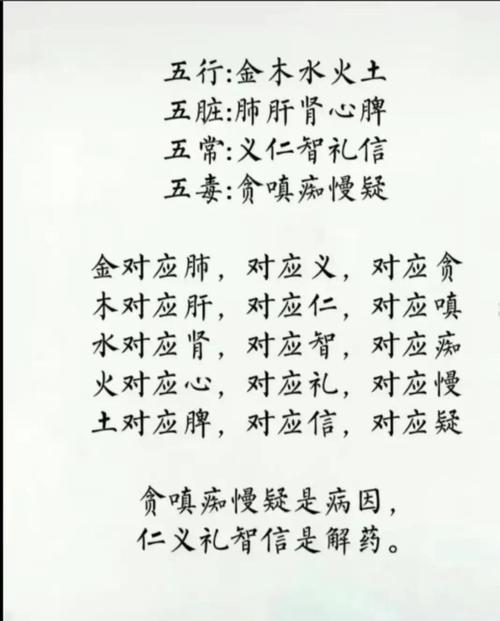 五行:金木水火土
五脏:肺肝肾心脾
五常:义仁智礼信
五毒:贪嗔痴慢疑
金对应肺，对应义，对应贪
木对应肝，对应仁，对应嗔
水对应肾，对应智，对应痴
火对应心，对应礼，对应慢
土对应脾，对应信，对应疑
贪嗔痴慢疑是病因，
仁义礼智信是解药。